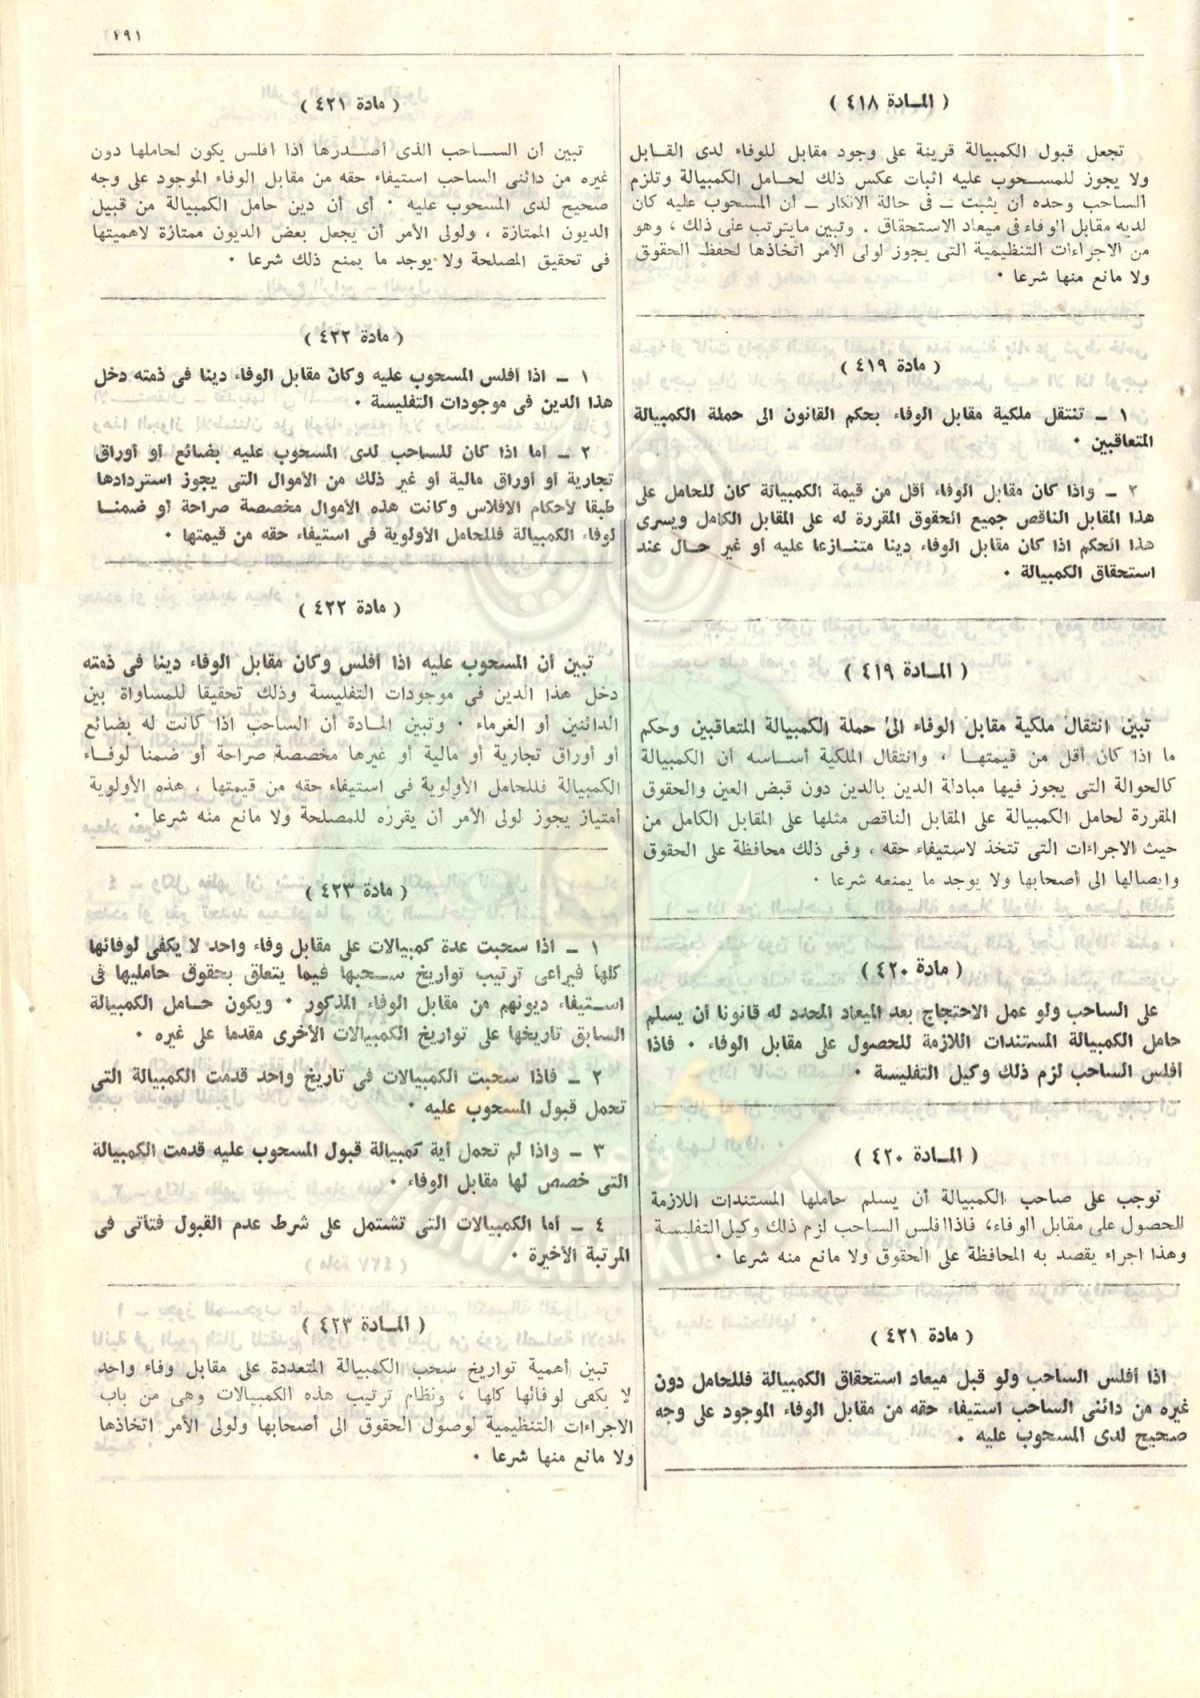 ٢٩١
( المـادة ٤١٨ )
تجعل قبول الكمبيالة قرينة على وجود مقابل للوفاء لدى القـابل
ولا يجوز للمسـحوب عليه اثبات عكس ذلك لحـامل الكمبيالة وتلزم
الساحب وحده أن يثبت ــ فى حالة الانكار ــ أن المسحوب عليه كان
لديه مقابل الوفاء فى ميعاد الاستحقاق . وتبين مايترتب على ذلك ، وهو
من الاجراءات التنظيمية التى يجوز لولى الأمر اتخاذها لحفظ الحقوق
ولا مانع منها شرعا ٠
( مادة ٤١٩ )
١ ــ تنتقل ملكية مقابل الوفاء بحكم القانون الى حملة الكمبيالة
المتعاقبين ٠
٢ ــ واذا كان مقابل الوفاء أقل من قيمة الكمبيالة كان للحامل على
هذا المقابل الناقص جميع الحقوق المقررة له على المقابل الكامل ويسرى
هذا الحكم اذا كان مقابل الوفاء دينا متنـازعا عليه أو غير حـال عند
استحقاق الكمبيالة ٠
( المـادة ٤١٩ )
تبين انتقال ملكية مقابل الوفاء الى حملة الكمبيالة المتعاقبين وحكم
ما اذا كان أقل من قيمتهـا ، وانتقال الملكية أسـاسه أن الكمبيالة
كالحوالة التى يجوز فيها مبادلة الدين بالدين دون قبض العين والحقوق
المقررة لحامل الكمبيالة على المقابل الناقص مثلها على المقابل الكامل من
حيث الاجراءات التى تتخذ لاستيفاء حقه ، وفى ذلك محافظة على الحقوق
وايصالها الى أصحابها ولا يوجد ما يمنعه شرعا ٠
( مادة ٤٢٠ )
على الساحب ولو عمل الاحتجاج بعد الميعاد المحدد له قانونا أن يسلم
حامل الكمبيالة المستندات اللازمة للحصول على مقابل الوفاء ٠ فاذا
أفلس الساحب لزم ذلك وكيل التفليسة ٠
( المـادة ٤٢٠ )
توجب على صاحب الكمبيالة أن يسلم حاملها المستندات اللازمة
للحصول على مقابل الوفاء، فاذا افلس الساحب لزم ذلك وكيل التفليسة
وهذا اجراء يقصد به المحافظة على الحقوق ولا مانع منه شرعا ٠
( مادة ٤٢١ )
اذا أفلس الساحب ولو قبل ميعاد استحقاق الكمبيالة فللحامل دون
غيره من دائنى الساحب استيفاء حقه من مقابل الوفاء الموجود على وجه
صحيح لدى المسحوب عليه ٠
( مادة ٤٢١ )
تبين أن الســاحب الذى أصـدرها اذا افلس يكون لحاملها دون
غيره من دائنى الساحب استيفاء حقه من مقابل الوفاء الموجود على وجه
صحيح لدى المسحوب عليه ٠ أى أن دين حامل الكمبيالة من قبيل
الديون الممتازة ، ولولى الأمر أن يجعل بعض الديون ممتازة لاهميتها
فى تحقيق المصلحة ولا يوجد ما يمنع ذلك شرعا ٠
( مادة ٤٢٢ )
١ ــ اذا أفلس المسحوب عليه وكان مقابل الوفاء دينا فى ذمته دخل
هذا الدين فى موجودات التفليسة ٠
٢ ــ أما اذا كان للساحب لدى المسحوب عليه بضائع أو أوراق
تجارية أو أوراق مالية أو غير ذلك من الأموال التى يجوز استردادها
طبقا لأحكام الافلاس وكانت هذه الأموال مخصصة صراحة أو ضمنـا
لوفاء الكمبيالة فللحامل الأولوية فى استيفاء حقه من قيمتها ٠
( مادة ٤٢٢ )
تبين أن المسحوب عليه اذا أفلس وكان مقابل الوفاء دينا فى ذمته
دخل هذا الدين فى موجودات التفليسة وذلك تحقيقا للمساواة بين
الدائنين أو الغرماء ٠ وتبين المـادة أن الساحب اذا كانت له بضائع
أو أوراق تجارية أو مالية أو غيرها مخصصة صراحة أو ضمنا لوفـاء
الكمبيالة فللحامل الأولوية فى استيفاء حقه من قيمتها ، هذه الأولوية
امتياز يجوز لولى الأمر أن يقرره للمصلحة ولا مانع منه شرعا ٠
( مادة ٤٢٣ )
١ ــ اذا سحبت عدة كمبيالات على مقابل وفاء واحد لا يكفى لوفائها
كلها فيراعى ترتيب تواريخ ســحبها فيما يتعلق بحقوق حامليها فى
اسـتيفاء ديونهم من مقابل الوفاء المذكور ٠ ويكون حـامل الكمبيالة
السابق تاريخها على تواريخ الكمبيالات الأخرى مقدما على غيره ٠
٢ ــ فاذا سحبت الكمبيالات فى تاريخ واحد قدمت الكمبيالة التى
تحمل قبول المسحوب عليه ٠
٣ ــ واذا لم تحمل أية كمبيالة قبول المسحوب عليه قدمت الكمبيالة
التى خصص لها مقابل الوفاء ٠
٤ ــ أما الكمبيالات التى تشتمل على شرط عدم القبول فتأتى فى
المرتبة الأخيرة ٠
( المـادة ٤٢٣ )
تبين أهمية تواريخ سحب الكمبيالة المتعددة على مقابل وفاء واحد
لا يكفى لوفائها كلها ، ونظام ترتيب هذه الكمبيالات وهى من باب
الاجراءات التنظيمية لوصول الحقوق الى أصحابها ولولى الأمر اتخاذها
ولا مانع منها شرعا ٠